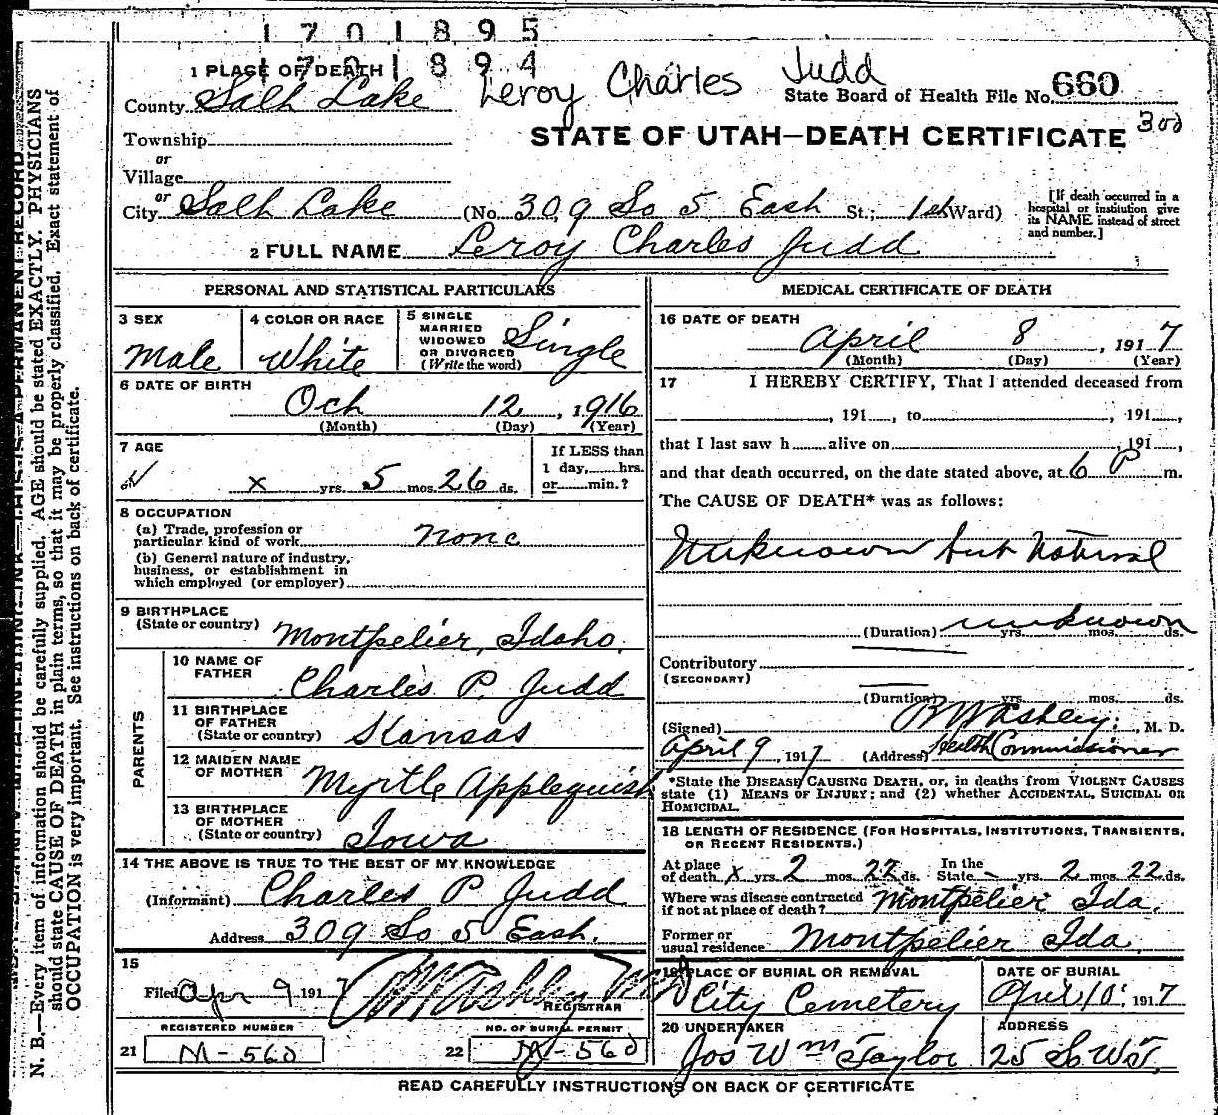 1701895
1701894
1 PLACE OF DEATH
Leroy Charles Judd
County Salt Lake
State Board of Health File No. 660
300
Township
STATE OF UTAH—DEATH CERTIFICATE
or
Village
or
City Salt Lake (No. 309 So 5 East St.; 1st Ward)
[If death occurred in a hospital or institution give its NAME instead of street and number.]
2 FULL NAME Leroy Charles Judd
PERSONAL AND STATISTICAL PARTICULARS
3 SEX Male
4 COLOR OR RACE White
5 SINGLE MARRIED WIDOWED OR DIVORCED (Write the word) Single
6 DATE OF BIRTH
Oct 12, 1916
(Month) (Day) (Year)
7 AGE
x yrs. 5 mos. 26 ds.
If LESS than
1 day, hrs.
or min.?
8 OCCUPATION
(a) Trade, profession or
particular kind of work None
(b) General nature of industry,
business, or establishment in
which employed (or employer)
9 BIRTHPLACE
(State or country) Montpelier, Idaho.
PARENTS
10 NAME OF
FATHER Charles P. Judd
11 BIRTHPLACE
OF FATHER
(State or country) Kansas
12 MAIDEN NAME
OF MOTHER Myrtle Applequist
13 BIRTHPLACE
OF MOTHER
(State or country) Iowa
14 THE ABOVE IS TRUE TO THE BEST OF MY KNOWLEDGE
(Informant) Charles P. Judd
Address 309 So 5 East.
15
Filed Apr 9 1917
REGISTRAR
REGISTERED NUMBER
21 M-560
NO. OF BURIAL PERMIT
22 M-560
MEDICAL CERTIFICATE OF DEATH
16 DATE OF DEATH
April 8, 1917
(Month) (Day) (Year)
17 I HEREBY CERTIFY, That I attended deceased from
, 191 , to , 191 ,
that I last saw h alive on , 191 ,
and that death occurred, on the date stated above, at 6 P m.
The CAUSE OF DEATH* was as follows:
Unknown but Natural
(Duration) unknown yrs. mos. ds.
Contributory
(SECONDARY)
(Duration) yrs. mos. ds.
(Signed) , M. D.
April 9, 1917 (Address) Health Commissioner
*State the DISEASE CAUSING DEATH, or, in deaths from VIOLENT CAUSES
state (1) MEANS OF INJURY; and (2) whether ACCIDENTAL, SUICIDAL OR
HOMICIDAL.
18 LENGTH OF RESIDENCE (FOR HOSPITALS, INSTITUTIONS, TRANSIENTS,
OR RECENT RESIDENTS.)
At place of death x yrs. 2 mos. 22 ds. In the State - yrs. 2 mos. 22 ds.
Where was disease contracted
if not at place of death? Montpelier Ida.
Former or
usual residence Montpelier Ida.
19 PLACE OF BURIAL OR REMOVAL
City Cemetery
DATE OF BURIAL
April 10, 1917
20 UNDERTAKER
Jos Wm Taylor
ADDRESS
25 So W T.
READ CAREFULLY INSTRUCTIONS ON BACK OF CERTIFICATE
N. B.—Every item of information should be carefully supplied. AGE should be stated EXACTLY. PHYSICIANS
should state CAUSE OF DEATH in plain terms, so that it may be properly classified. Exact statement of
OCCUPATION is very important. See instructions on back of certificate.